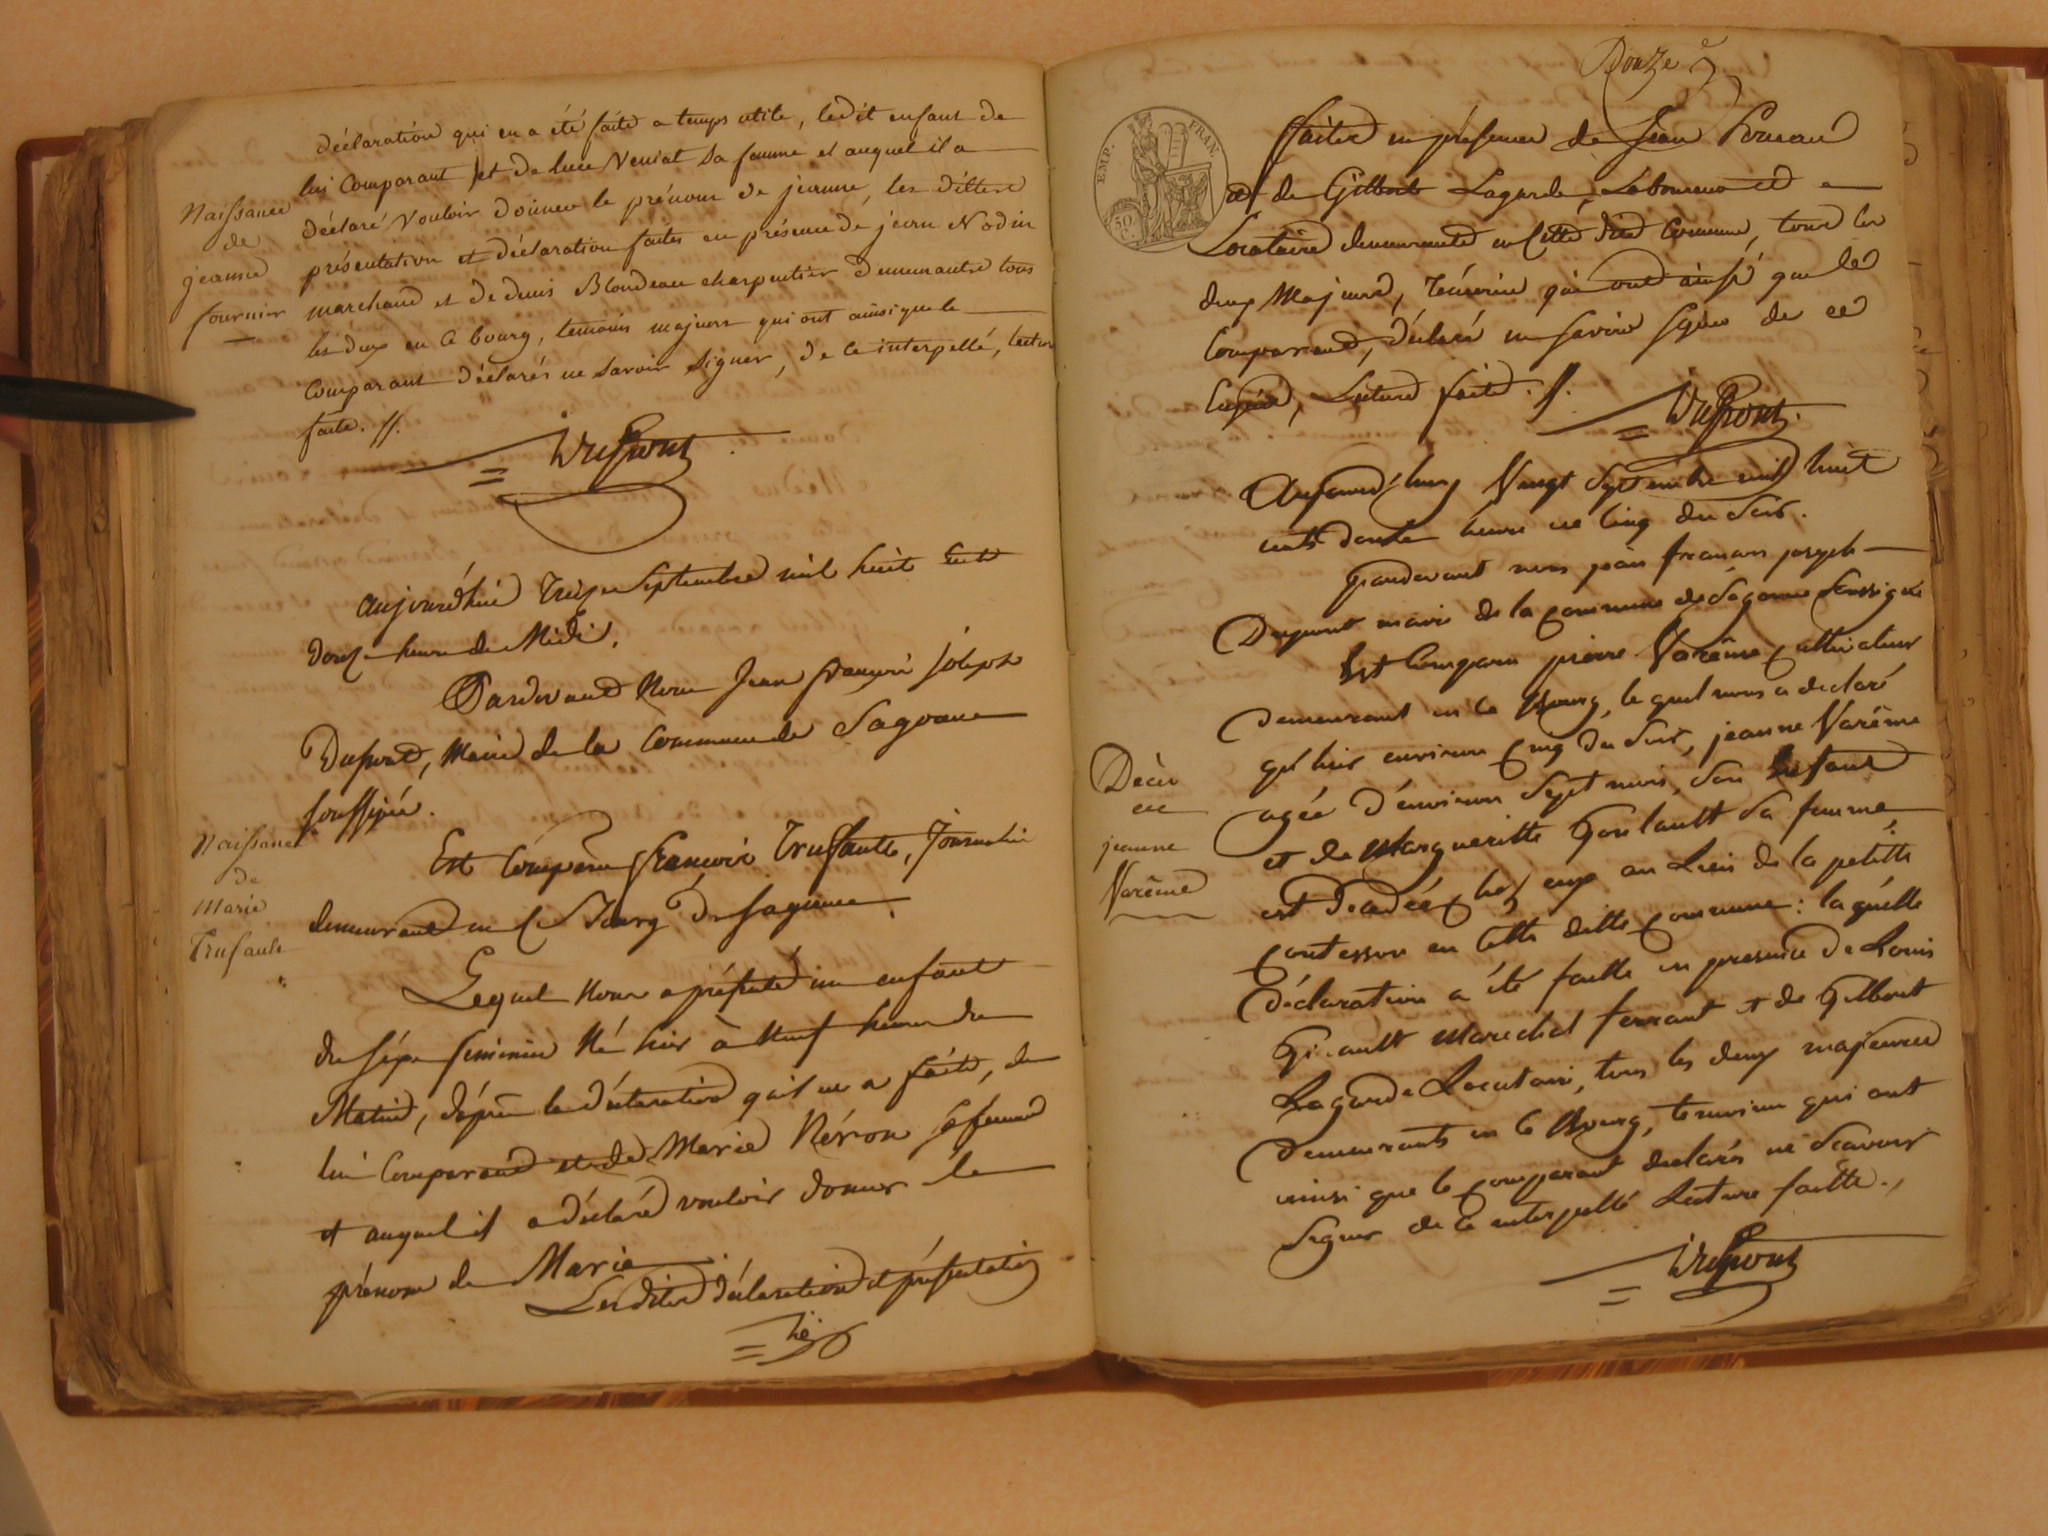 déclaration qui en a été faite a temps utile, ledit enfant de
lui Comparant et de luce Veniat sa femme et auquel il a
déclaré Vouloir donner le prénom de jeanne, les dittes
présentation et déclaration faites en présence de jean Nodin
marchand et de denis Blondeau charpentier demeurants tous
les deux en ce bourg, temoins majeurs qui ont ainsi que le
Comparant déclarés ne savoir signer, de ce interpellé, lecture
faite. //.
Naissance
de
jeanne
fournier
Dupont
aujourd'hui Treize Septembre mil huit cent
douze heure de Midi.
Pardevant Nous Jean françois joseph
Dupont, Maire de la Commune de Sagonne
soussigné.
Naissance
de
Marie
Trufault
Est Comparu françois Trufault, Journalier
demeurant en ce Bourg de Sagonne,
Lequel Nous a présenté un enfant
du séxe féminin Né hier à Neuf heures du
Matin, d'après la déclaration qu'il en a faite, de
lui Comparant et de Marie Néron sa femme
et auquel il a déclaré vouloir donner le
prénom de Marie
Lesdites déclaration et présentation
Douze
EMP. FRAN.
50 C.
faites en présence de Jean
et de Gilbert Lagarde, Laboureur et
Locataire demeurants en Cette dite Commune, tous les
deux Majeurs, Témoins qui ont ainsi que le
Comparant, déclaré ne savoir signer de ce
Lecture faite. //.
Dupont
Aujourd'huy Vingt Septembre mil huit
cents douze heure de cinq du soir.
Pardevant nous jean francois joseph
Dupont maire de la commune de Sagonne soussigné
Est Comparu pierre Varême cultivateur
demeurant en ce Bourg, lequel nous a declaré
qu'hier environ cinq du soir, jeanne Varême
agée d'environ sept mois, son Enfant
et de Margueritte Goulault sa femme,
est décédée chez eux au Lieu de la petitte
contesson en cette ditte commune : laquelle
déclaration a été faitte en presence de Louis
Girault marechal ferrant et de Gilbert
Lagarde Locataire, tous les deux majeures
demeurants en ce Bourg, temoins qui ont
ainsi que le comparant declarés ne scavoir
signer de ce interpellé Lecture faitte.
Décès
de
jeanne
Varême
Dupont